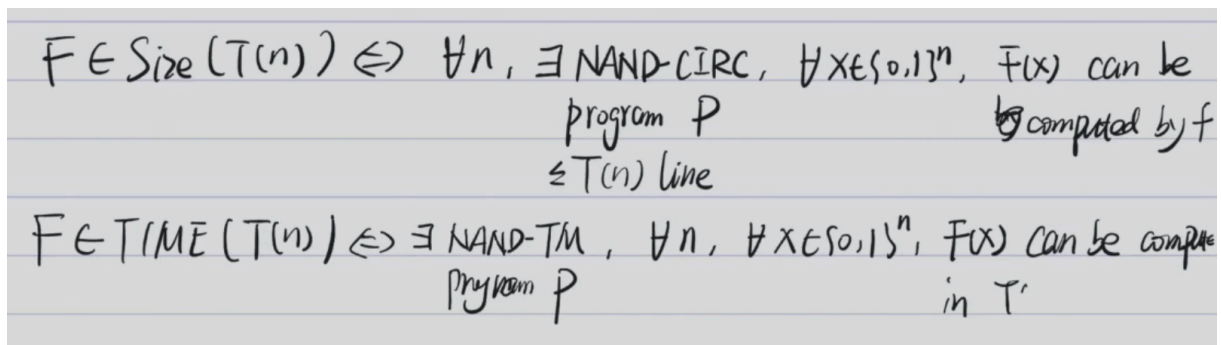 F ∈ Size(T(n)) ⇔ ∀n, ∃ NAND-CIRC, ∀x∈{0,1}ⁿ, F(x) can be
program P computed by f
≤ T(n) line
F ∈ TIME(T(n)) ⇔ ∃ NAND-TM, ∀n, ∀x∈{0,1}ⁿ, F(x) can be compute
program P in T